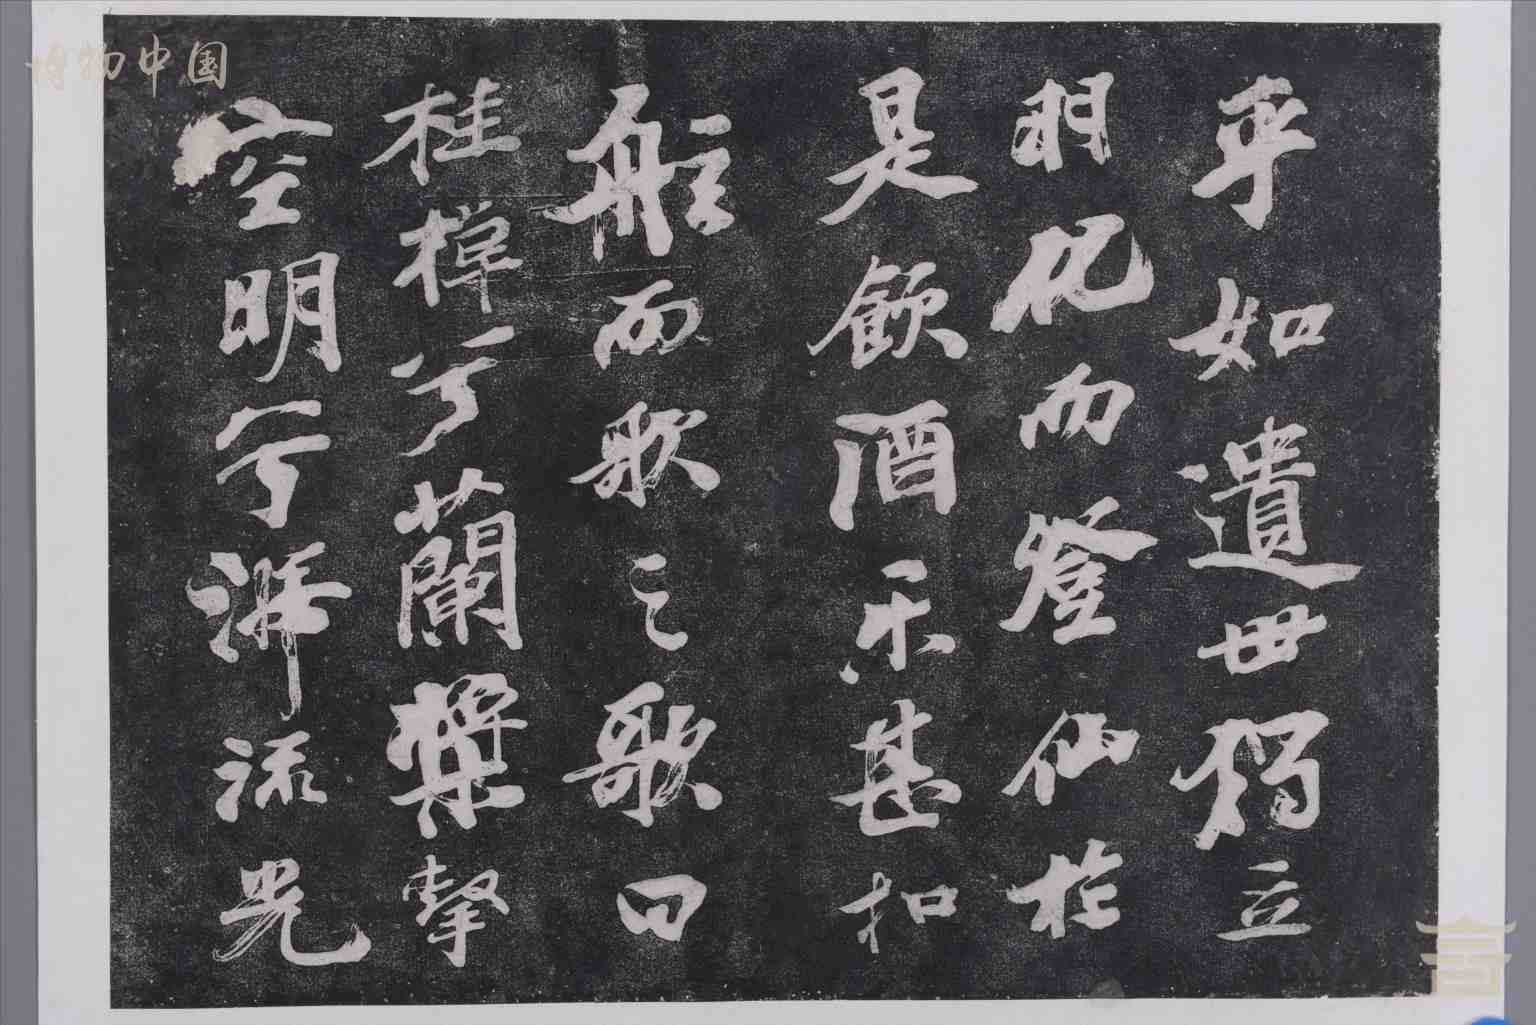 博物中国
乎如遺世獨立
羽化而登仙於
是飲酒樂甚扣
舷而歌之歌曰
桂棹兮蘭槳擊
空明兮泝流光